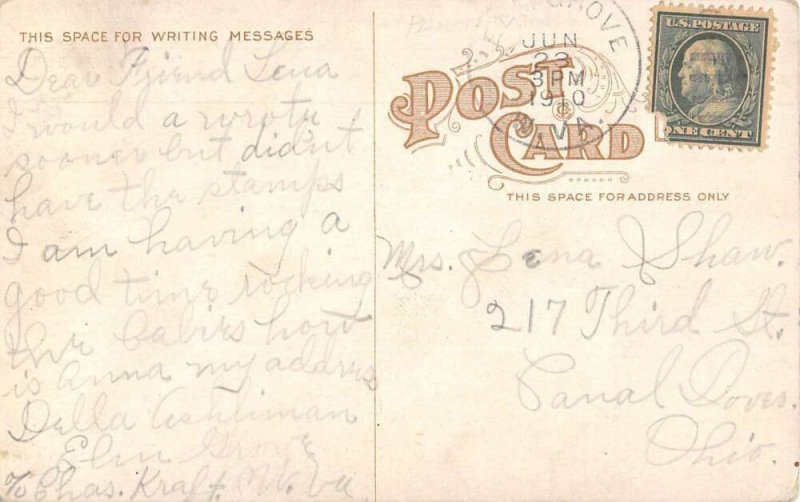 THIS SPACE FOR WRITING MESSAGES
Dear Friend Lena
I would a wrote
sooner but didn't
have the stamps
I am having a
good time rocking
the babies how
is Anna my addres
Della Ashliman
Elm Grove
c/o Chas. Kraft. W. Va
GROVE
JUN
23
3PM
1910
W.VA.
U.S. POSTAGE
ONE CENT
POST
CARD
THIS SPACE FOR ADDRESS ONLY
Mrs. Lena Shaw.
217 Third St.
Canal Dover.
Ohio.